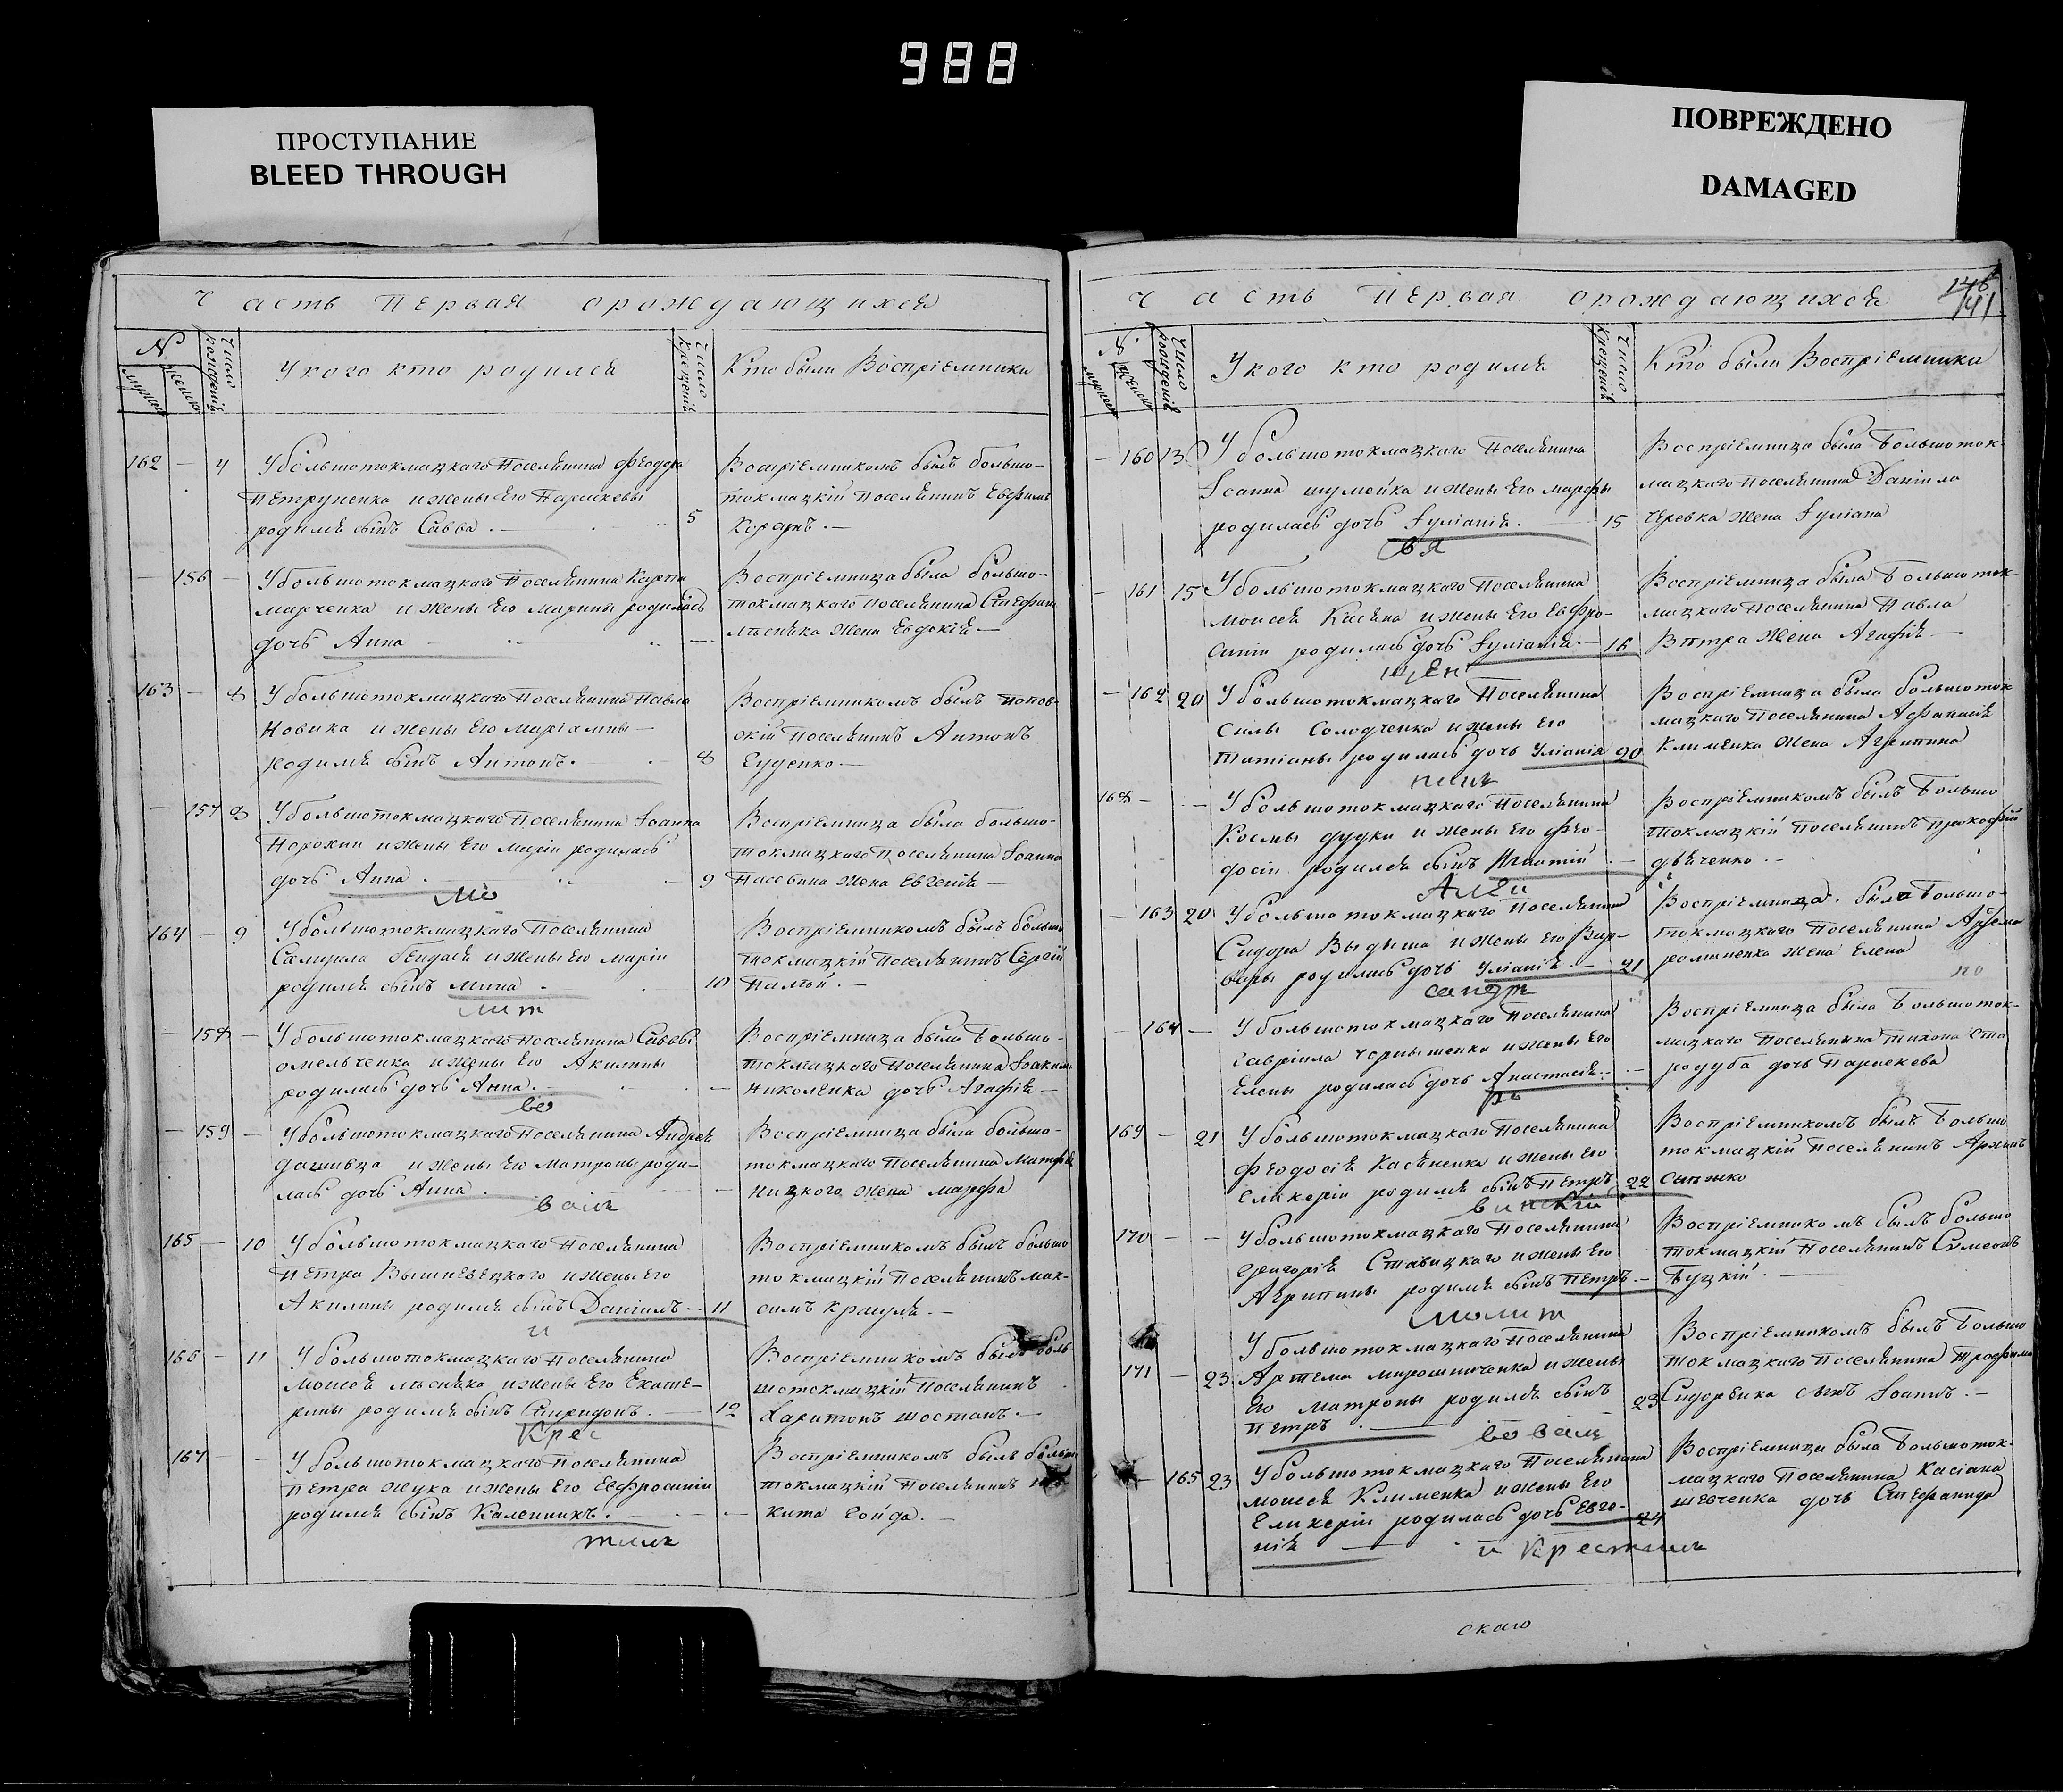 988
ПРОСТУПАНИЕ
BLEED THROUGH
ПОВРЕЖДЕНО
DAMAGED
Часть Первая орождающихся
№
Число рожденія
Укого кто родился
Число крещенія
Кто были Воспріемники
162 — 4 Убольшотокмацкаго Поселянина Феодора
Петрученка и жены Его Параскевы
родился сынъ Савва. — 5
Воспріемникомъ былъ большо-
токмацкій Поселянинъ Евфимъ
— 156 — Убольшотокмацкаго Поселянина Карпа
марченка и жены Его марины родилась
дочь Анна —
Воспріемница была большо-
токмацкаго Поселянина Стефана
лысенка жена Евдокія —
163 — 8 Убольшотокмацкаго Поселянина Павла
Новика и жены Его маріамны —
родился сынъ Антонъ. — 8
Воспріемникомъ былъ попов-
скій Поселянинъ Антонъ
— 157 8 Убольшотокмацкаго Поселянина Іоанна
и жены Его маріи родилась
дочь Анна — 9
Воспріемница была большо-
токмацкаго Поселянина Іоанна
жена Евгенія —
164 — 9 Убольшотокмацкаго Поселянина
Самуила и жены Его маріи
родился сынъ мина 10
Воспріемникомъ былъ большо
токмацкій Поселянинъ Сергій
— 158 — Убольшотокмацкаго Поселянина Саввы
омельченка и жены Его Акилины
родилась дочь Анна. —
Воспріемница была большо-
токмацкаго Поселянина Іоакима
николенка дочь Агафія —
во
— 159 — Убольшотокмацкаго Поселянина Андрея
и жены Его матроны роди-
лась дочь Анна. —
Воспріемница была большо-
токмацкаго Поселянина матфея
жена марфа
165 — 10 Убольшотокмацкаго Поселянина
Петра Вышневецкаго и жены Его
Акилины родился сынъ Даніилъ — 11
Воспріемникомъ былъ большо
токмацкій Поселянинъ мак-
симъ
и
166 — 11 Убольшотокмацкаго Поселянина
моисея лысенка и жены Его Екате-
рины родился сынъ Спиридонъ. — 12
Воспріемникомъ былъ боль
шотокмацкій Поселянинъ
Харитонъ шостакъ. —
Крес
167 — — Убольшотокмацкаго Поселянина
Петра жука и жены Его Евфросиніи
родился сынъ Калинникъ. —
Воспріемникомъ былъ большо
токмацкій Поселянинъ
тилъ
Часть Первая орождающихся
141
№
Число рожденія
Укого кто родился
Число крещенія
Кто были Воспріемники
— 160 13 Убольшотокмацкаго Поселянина
Іоанна шумейка и жены Его марфы
родилась дочь Іуліанія. — 15
Воспріемница была Большоток-
мацкаго Поселянина Даніила
жена Іуліана
— 161 15 Убольшотокмацкаго Поселянина
моисея и жены Его Евфро-
синіи родилась дочь Іуліанія — 16
Воспріемница была Большоток-
мацкаго Поселянина Павла
жена Агафія —
щен
— 162 20 Убольшотокмацкаго Поселянина
Силы Солодченка и жены Его
Татіаны родилась дочь Уліанія 20
Воспріемница была большоток
мацкаго Поселянина Афанасія
Клименка жена Агрипина
168 — — Убольшотокмацкаго Поселянина
Космы дудки и жены Его Фео-
досіи родился сынъ Игнатій —
Воспріемникомъ былъ Большо
токмацкій Поселянинъ Прокофій
дьяченко. —
— 163 20 Убольшотокмацкаго Поселянина
Сидора и жены Его Вар-
вары родилась дочь Уліанія — 21
Воспріемница была большо-
токмацкаго Поселянина
романенка жена Елена
— 164 — Убольшотокмацкаго Поселянина
гавріила чорнышенка и жены Его
Елены родилась дочь Анастасія —
Воспріемница была Большоток-
мацкаго Поселянина тихона Ста
родуба дочь Параскева
169 — 21 Убольшотокмацкаго Поселянина
Феодосія Касяненка и жены Его
Гликеріи родился сынъ Петръ 22
Воспріемникомъ былъ Большо
токмацкій Поселянинъ Архипъ
170 — — Убольшотокмацкаго Поселянина
григорія Ставицкаго и жены Его
Агрипины родился сынъ Петръ. —
Воспріемникомъ былъ большо
токмацкій Поселянинъ Симеонъ
Буцкій. —
молит
171 — 23 Убольшотокмацкаго Поселянина
Артема мирошниченка и жены
Его матроны родился сынъ 23
Петръ. —
Воспріемникомъ былъ Большо
токмацкаго Поселянина трофима
Сидоренка сынъ Іоаннъ. —
— 165 23 Убольшотокмацкаго Поселянина
моисея Клименка и жены Его
Гликеріи родилась дочь Евге- 24
нія —
Воспріемница была Большоток-
мацкаго Поселянина Касіана
шевченка дочь Стефанида
и Крестилъ
скаго